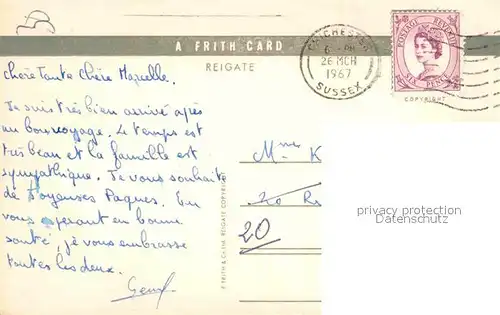 A FRITH CARD
REIGATE
CHICHESTER
6 - PM
26 MCH
1967
SUSSEX
POSTAGE REVENUE
SIX PENCE
COPYRIGHT
Chère Tante Chère Marcelle.
Je suis très bien arrivé après
un bon voyage. Le temps est
très beau et la famille est
sympathique. Je vous souhaite
de Joyeuses Paques. En
vous esperant en bonne
santé, je vous embrasse
toutes les deux.
F. FRITH & Co. LTD. REIGATE COPYRIGHT
Mme K
20
privacy protection
Datenschutz